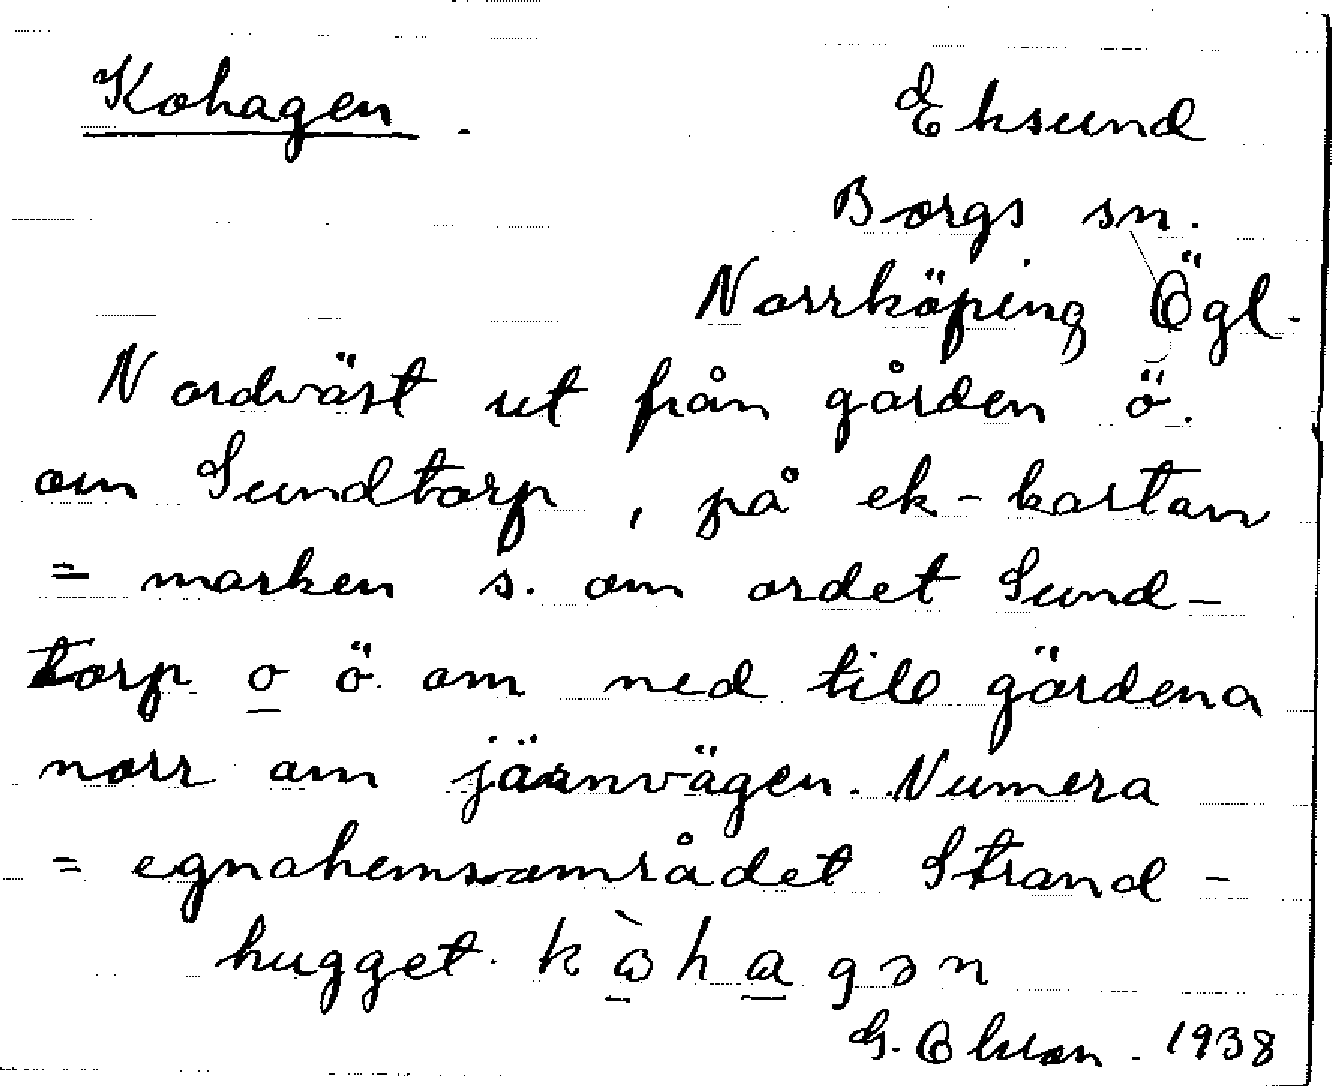 Kohagen. Eksund
Borgs sn.
Norrköping Ögl.
Nordväst ut från gården ö.
om Sundtorp, på ek-kartan
= marken s. om ordet Sund-
torp o ö. om ned till gärdena
norr om järnvägen. Numera
= egnahemsområdet Strand-
hugget. kὼhagən
G. Olsson. 1938